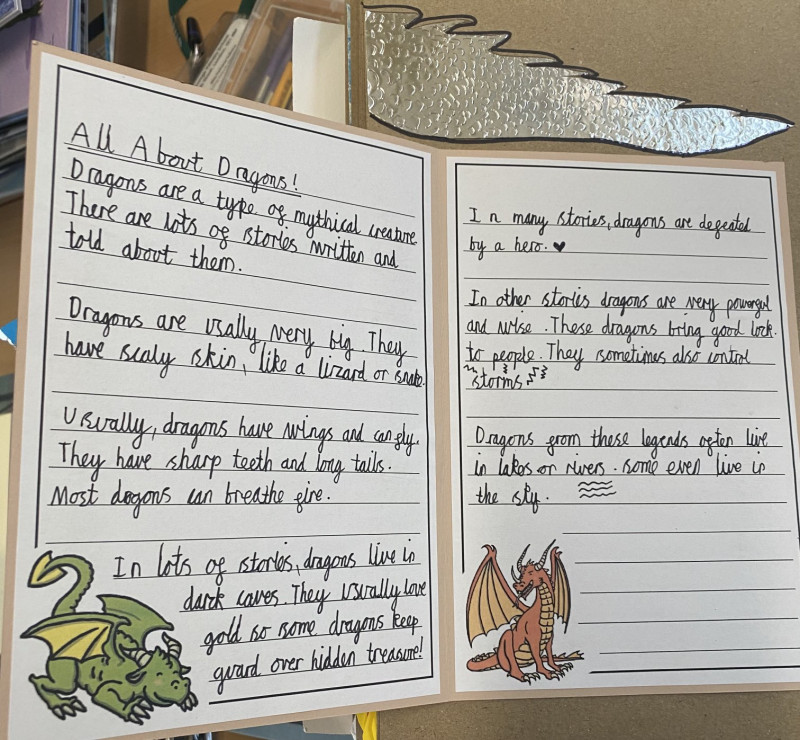 All About Dragons!
Dragons are a type of mythical creature.
There are lots of stories written and
told about them.
Dragons are usally very big. They
have scaly skin, like a lizard or snake.
Usually, dragons have wings and can fly.
They have sharp teeth and long tails.
Most dragons can breathe fire.
In lots of stories, dragons live in
dark caves. They usually love
gold so some dragons keep
guard over hidden treasure!
In many stories, dragons are defeated
by a hero. ♥
In other stories dragons are very powerful
and wise. These dragons bring good lock.
to people. They sometimes also control
storms
Dragons from these legends often live
in lakes or rivers. some even live in
the sky.